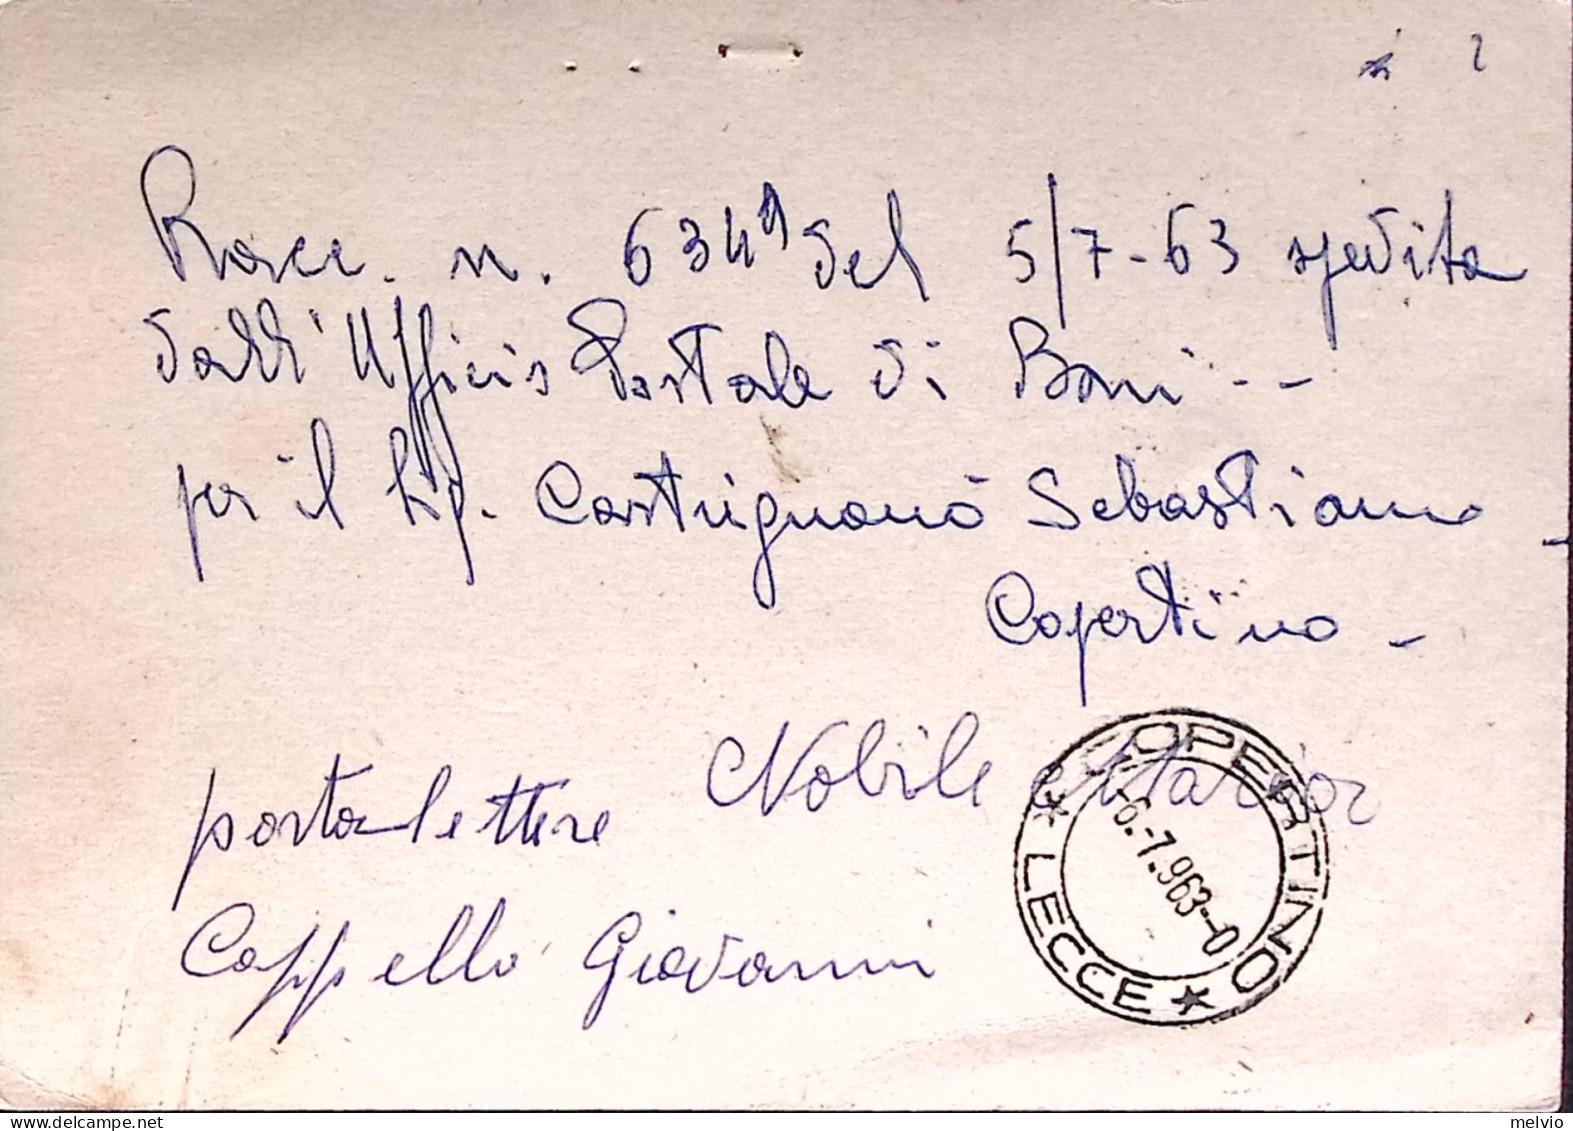 Racc. n. 6349 del 5/7-63 spedita
dall'Ufficio Postale di Bari --
per il Sig. Castrignanò Sebastiano -
Copertino -
portalettere Nobile Maria
Cappello Giovanni
COPERTINO
* LECCE *
-6.-7.963--0
melvio